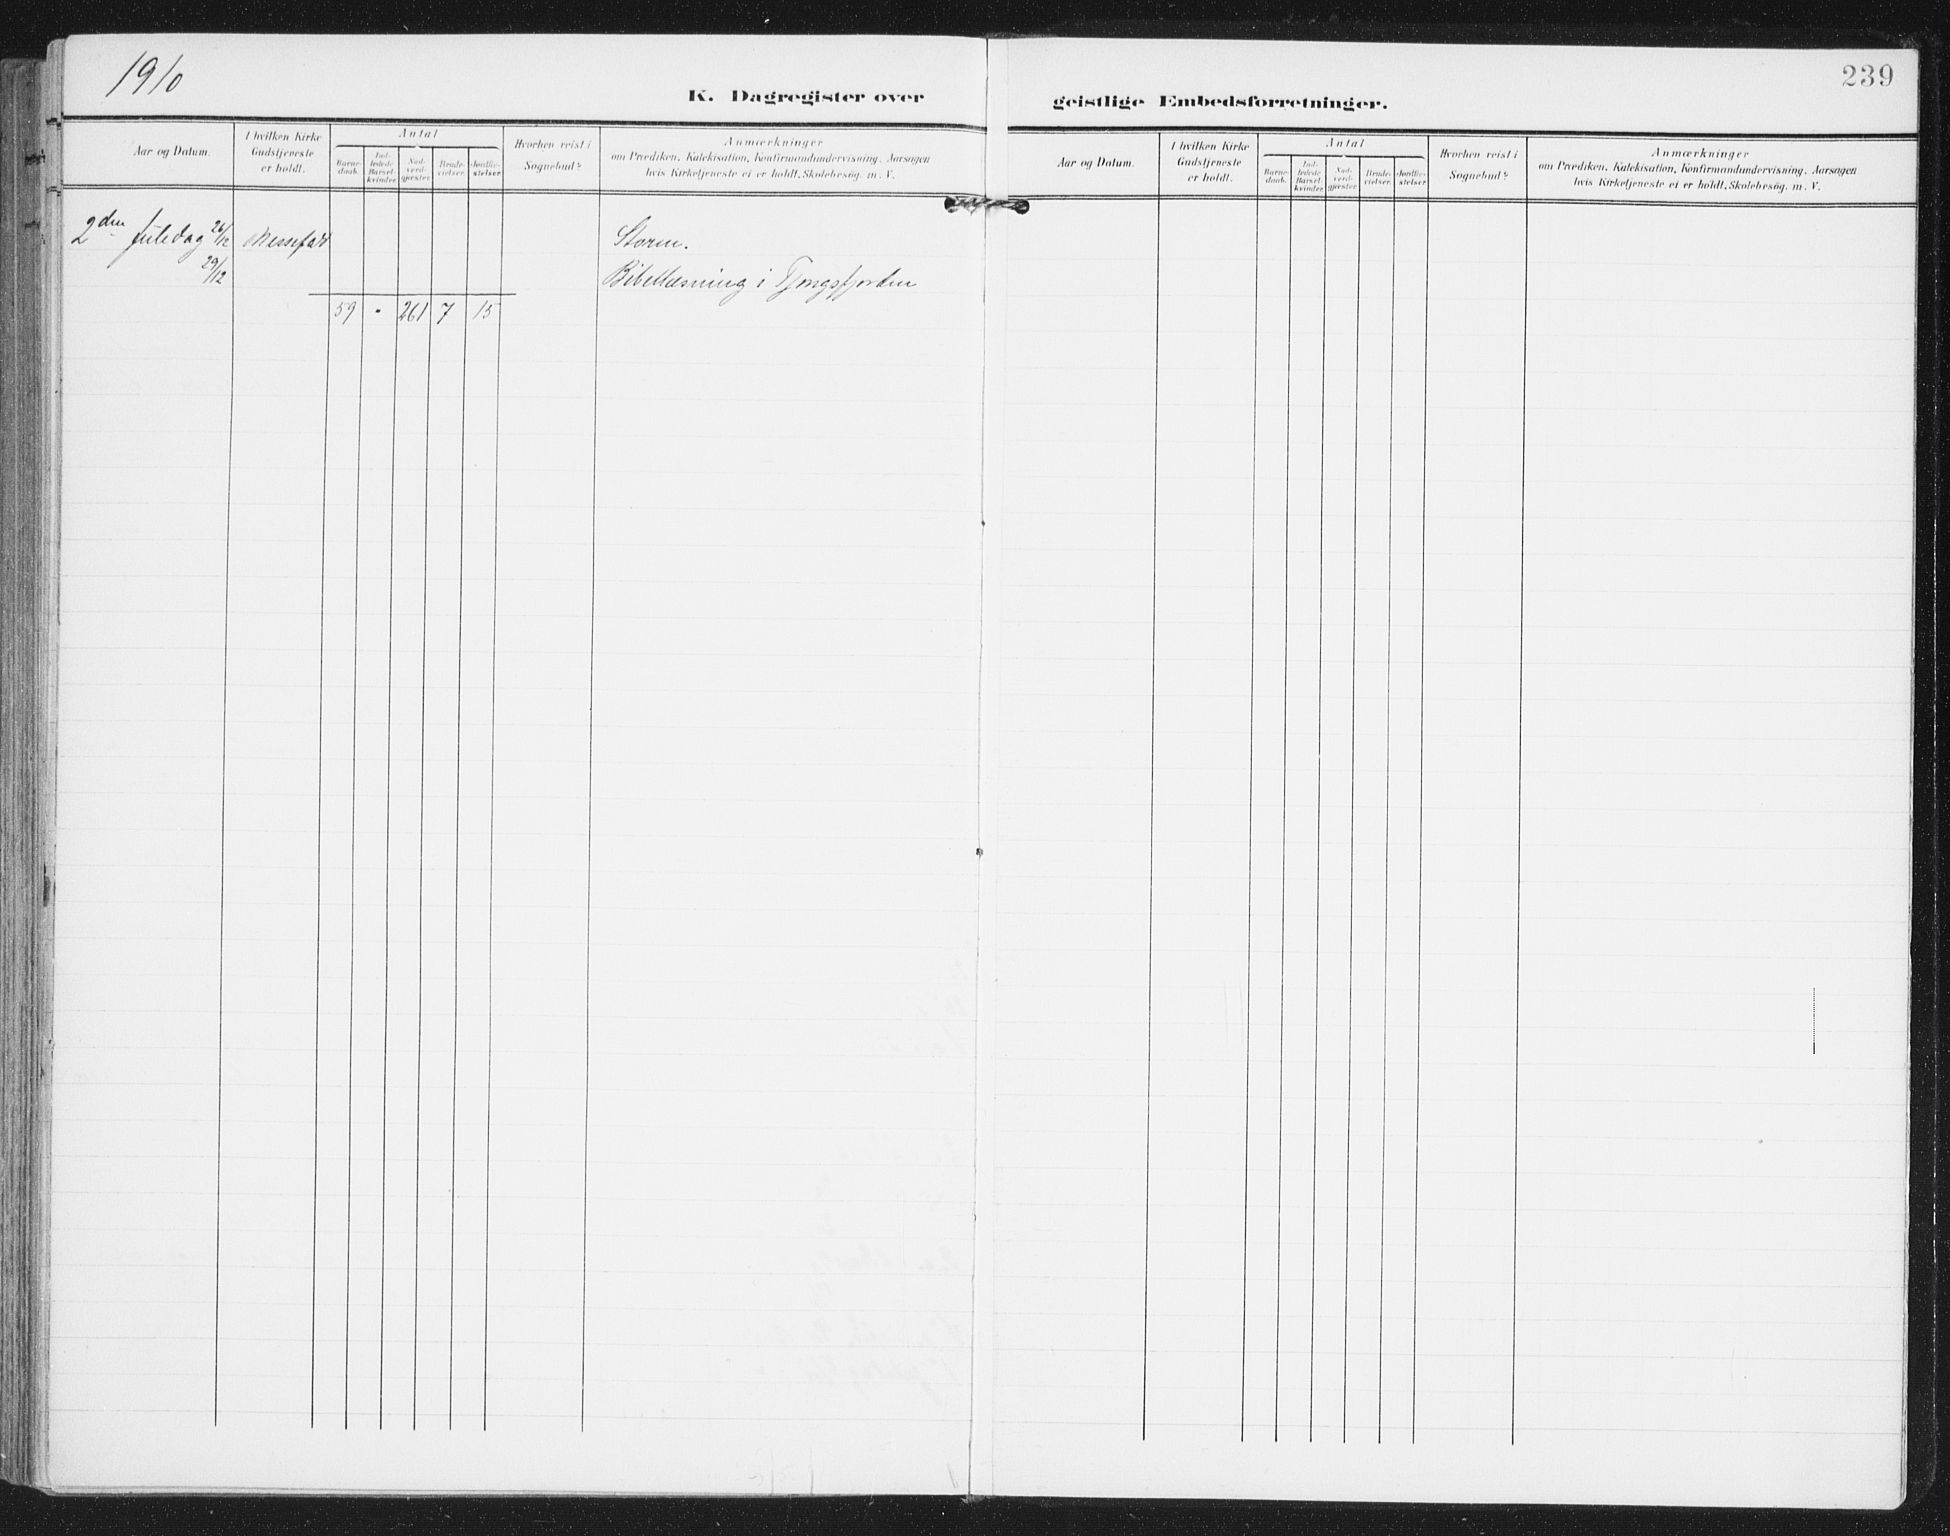 1910
K. Dagregister over
Aar og Datum.
I hvilken Kirke
Gudstjeneste
er holdt.
Antal
Barne-
daab.
Ind-
ledede
Barsel-
kvinder.
Nad-
verd-
gjester.
Brude-
vielser.
Jordfæ-
stelser.
Hvorhen reist i
Sognebud?
Anmærkninger
om Prædiken, Katekisation, Konfirmandundervisning, Aarsagen
hvis Kirketjeneste ei er holdt, Skolebesøg. m. V.
2den Juledag 26/12 Messefald Storm.
29/12 Bibellæsning i Tjongsfjorden
59 - 261 7 15
239
geistlige Embedsforretninger.
Aar og Datum.
I hvilken Kirke
Gudstjeneste
er holdt.
Antal
Barne-
daab.
Ind-
ledede
Barsel-
kvinder.
Nad-
verd-
gjester.
Brude-
vielser.
Jordfæ-
stelser.
Hvorhen reist i
Sognebud?
Anmærkninger
om Prædiken, Katekisation, Konfirmandundervisning, Aarsagen
hvis Kirketjeneste ei er holdt, Skolebesøg. m. V.